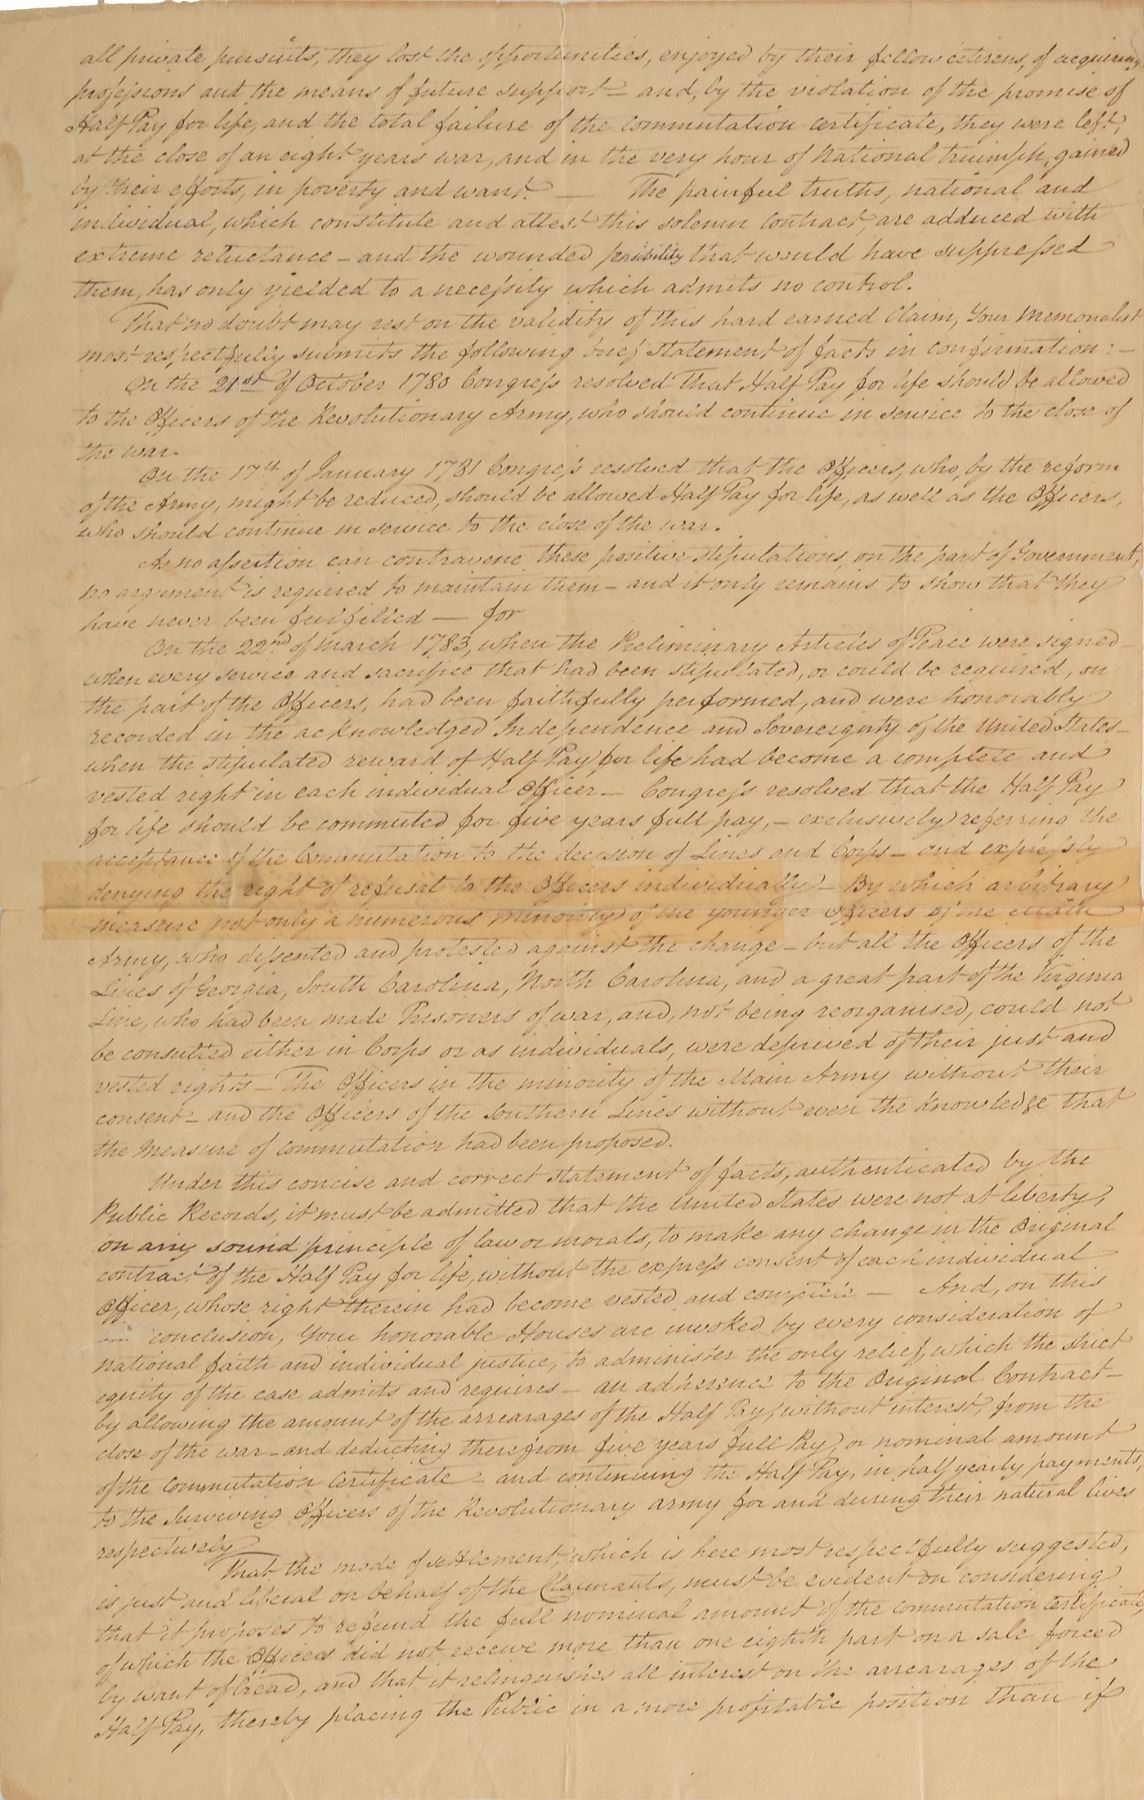 all private pursuits, they lost the opportunities, enjoyed by their fellow citizens, of acquiring
professions and the means of future support – and, by the violation of the promise of
Half Pay for life, and the total failure of the commutation certificate, they were left,
at the close of an eight years war, and in the very hour of National triumph, gained
by their efforts, in poverty and want. — The painful truths, national and
individual, which constitute and attest this solemn contract, are adduced with
extreme reluctance – and the wounded sensibility that would have suppressed
them, has only yielded to a necessity which admits no control.
That no doubt may rest on the validity of this hard earned Claim, Your Memorialist
most respectfully submits the following brief statement of facts in confirmation: –
On the 21st of October 1780 Congress resolved that Half Pay for life should be allowed
to the Officers of the Revolutionary Army, who should continue in service to the close of
the war.
On the 17th of January 1781 Congress resolved that the Officers, who, by the reform
of the Army, might be reduced, should be allowed Half Pay for life, as well as the Officers,
who should continue in service to the close of the war.
As no assertion can contravene these positive stipulations, on the part of Government,
no argument is required to maintain them – and it only remains to show that they
have never been fulfilled — for
On the 22nd of March 1783, when the Preliminary Articles of Peace were signed –
when every service and sacrifice that had been stipulated, or could be required, on
the part of the Officers, had been faithfully performed, and were honorably
recorded in the acknowledged Independence and Sovereignty of the United States –
when the stipulated reward of Half Pay for life had become a complete and
vested right in each individual Officer – Congress resolved that the Half Pay
for life should be commuted for five years full pay, – exclusively referring the
acceptance of the Commutation to the decision of Lines and Corps – and expressly
denying the right of refusal to the Officers individually – By which arbitrary
measure not only a numerous minority of the younger Officers of the Main
Army, who dissented and protested against the change – but all the Officers of the
Lines of Georgia, South Carolina, North Carolina, and a great part of the Virginia
Line, who had been made Prisoners of war, and, not being reorganised, could not
be consulted either in Corps or as individuals, were deprived of their just and
vested rights – The Officers in the minority of the Main Army without their
consent – and the Officers of the Southern Lines without even the knowledge that
the measure of commutation had been proposed.
Under this concise and correct statement of facts, authenticated by the
Public Records, it must be admitted that the United States were not at liberty,
on any sound principle of law or morals, to make any change in the Original
contract of the Half Pay for life, without the express consent of each individual
Officer, whose right therein had become vested and complete — And, on this
conclusion, Your honorable Houses are invoked by every consideration of
national faith and individual justice, to administer the only relief, which the strict
equity of the case admits and requires – an adherence to the Original Contract –
by allowing the amount of the arrearages of the Half Pay, without interest, from the
close of the war – and deducting therefrom five years full Pay, or nominal amount
of the Commutation Certificate – and continuing the Half Pay, in half yearly payments,
to the surviving Officers of the Revolutionary army for and during their natural lives
respectively.
That the mode of settlement, which is here most respectfully suggested,
is just and liberal on behalf of the Claimants, must be evident on considering
that it proposes to refund the full nominal amount of the commutation certificate,
of which the Officers did not receive more than one eighth part on a sale forced
by want of bread, and that it relinquishes all interest on the arrearages of the
Half Pay, thereby placing the Public in a more profitable position than if